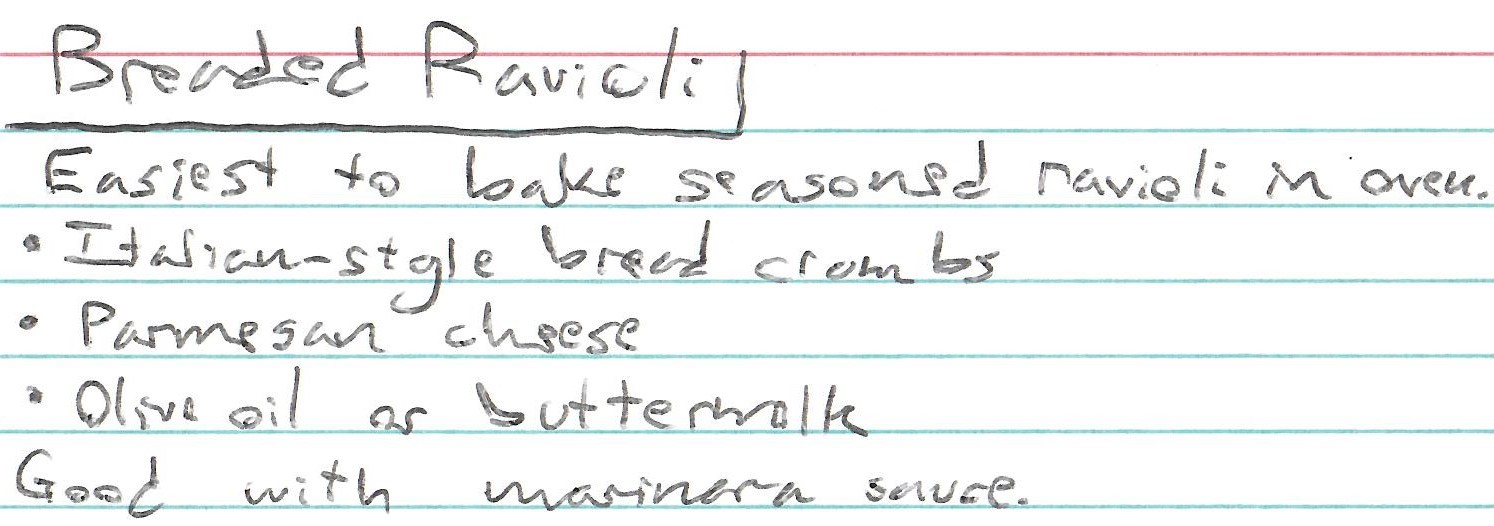 Breaded Ravioli
Easiest to bake seasoned ravioli in oven.
• Italian-style bread crombs
• Parmesan cheese
• Olive oil or buttermolk
Good with marinara sauce.